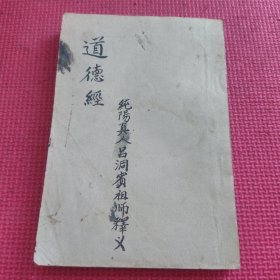 道德經
純陽真人呂洞賓祖师釋义